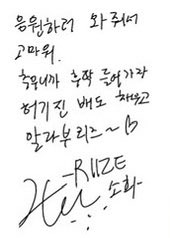 응원하러 와줘서
고마워.
추우니까 후딱 들어가라
허기진 배도 채우고
알라부리즈~♡
-RIIZE
소희-